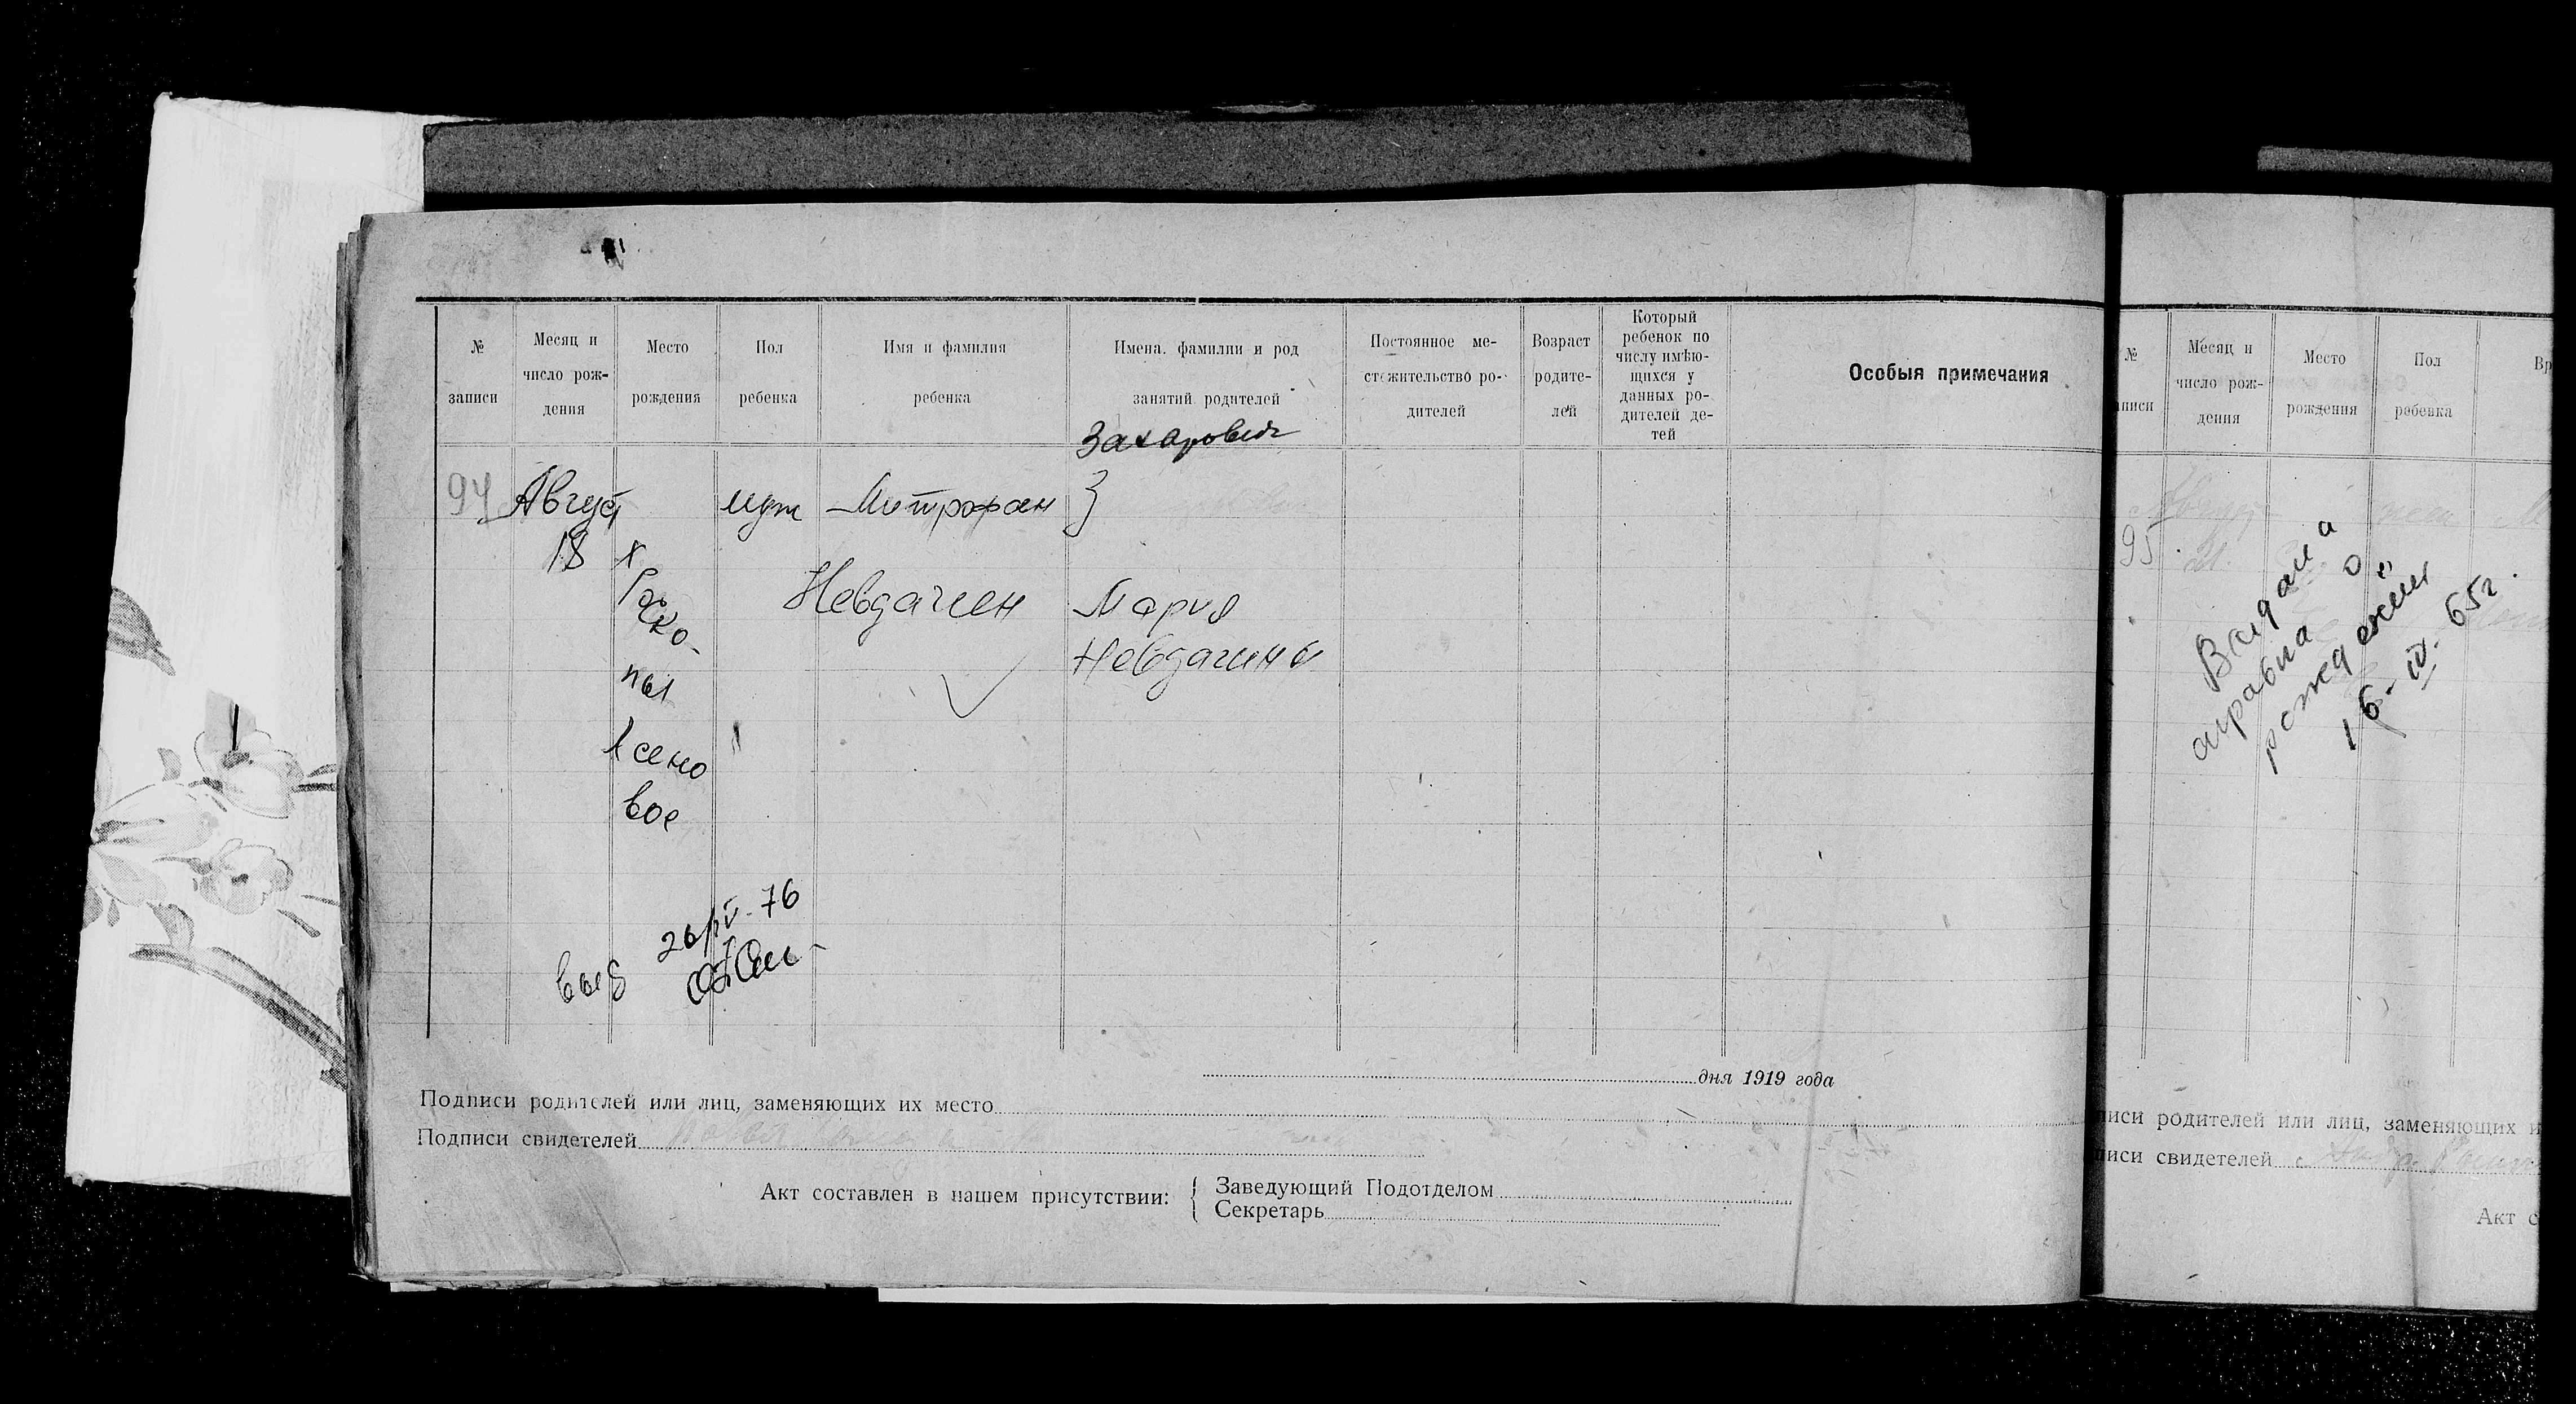 № записи
Месяц и число рож-дения
Место рождения
Пол ребенка
Имя и фамилия ребенка
Имена, фамилии и род занятий родителей
Постоянное ме-стожительство ро-дителей
Возраст родите-лей
Который ребенок по числу имѣю-щихся у данных ро-дителей де-тей
Особыя примечания
Захарович
94 Август муж Митрофан З
18 х
Раско-
Невдачин Мария
пы Невдачины
Ясено
вое
26/IV-76
выд
дня 1919 года
Подписи родителей или лиц, заменяющих их место
Подписи свидетелей
Акт составлен в нашем присутствии:
Заведующий Подотделом
Секретарь
№
аписи
Месяц и число рож-дения
Место рождения
Пол ребенка
95
21.
Выдана
справка о
рождении
16-IV-65г.
писи родителей или лиц, заменяющих и
писи свидетелей
Акт с